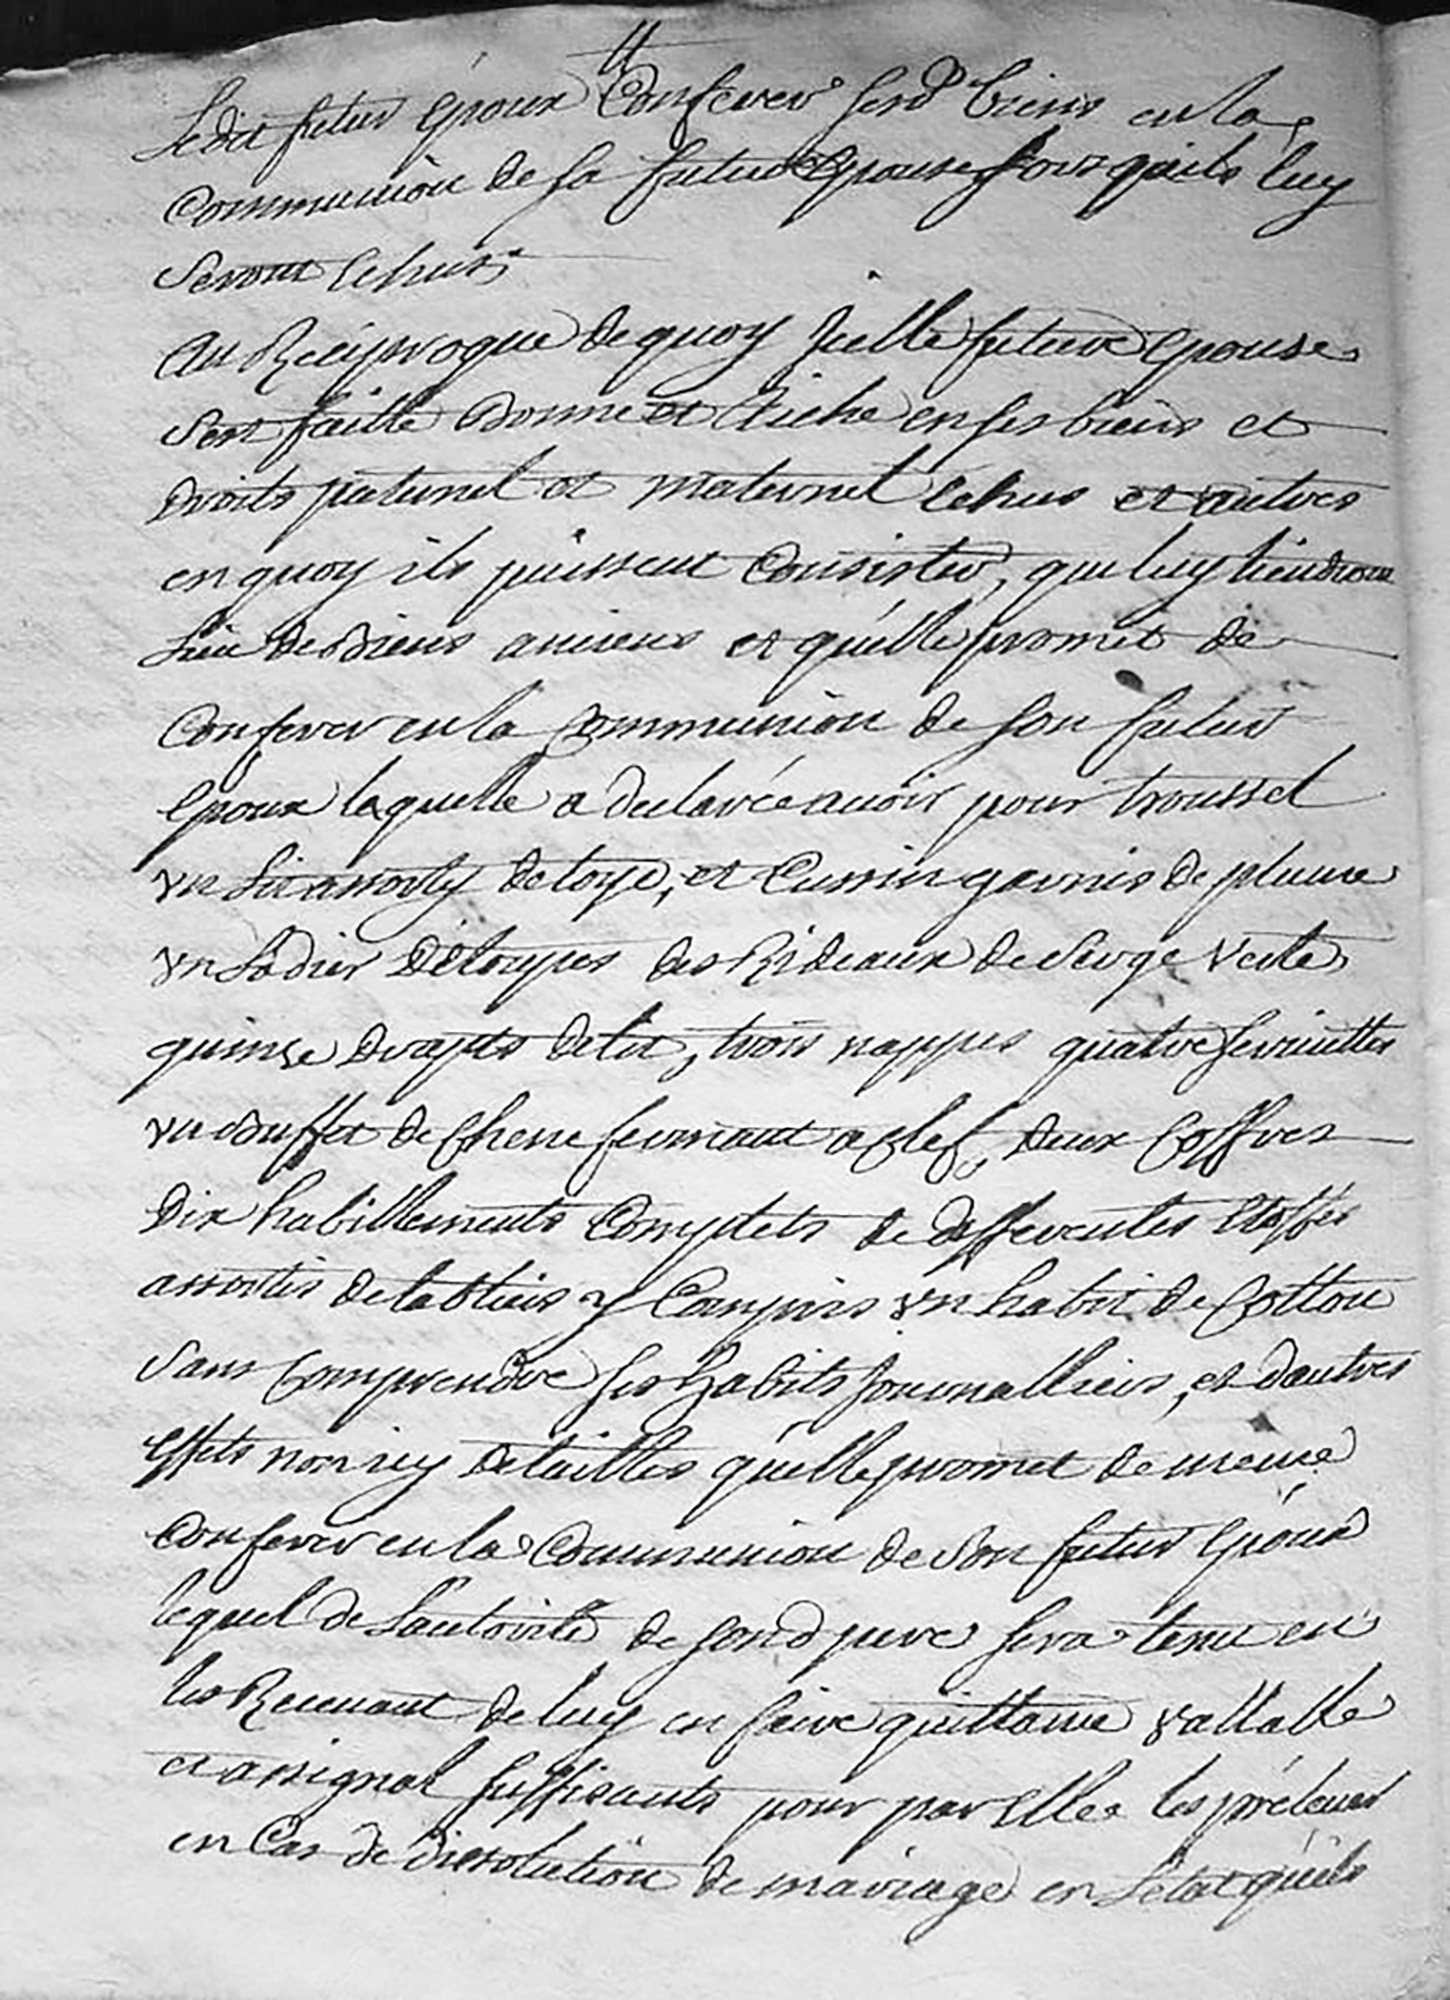 Ledit futur Epoux Conferer sesd. biens en la
Communion de sa future Epouse lors quils luy
Seront Echus;
Au Reciproque de quoy Jcelle future Epouse
Sest faitte Donne et Riche en ses biens et
Droits paternel et maternel Echus et autres
en quoy ils puissent Consister, qui luy tiendront
Lieu de Biens anciens et qu'elle promet de
Conferer en la Communion de son futur
Epoux laquelle a declarée avoir pour troussel
vn Lit assorty de toye, et Cussin garnis de plume
vn Lodier D'Etoupes des Rideaux de Serge verte
quinze Drapts de lit, trois nappes quatre serviettes
vn Buffet de Chene fermant a Clef, Deux Coffres
Dix habillements Complets de differentes Etoffes
assortis de tabliers y Compris vn habit de Cotton
Sans Comprendre ses habits Journalliers, et d'autres
Effets non icy detailles qu'elle promet de meme
Conferer en la Communion de Son futur Epoux
lequel de L'autorité de sond. pere sera tenu en
les Recevant de luy en faire quittance vallable
et assignal suffisants pour par Elle les prelever
en Cas de dissolution de mariage en L'etat qu'ils